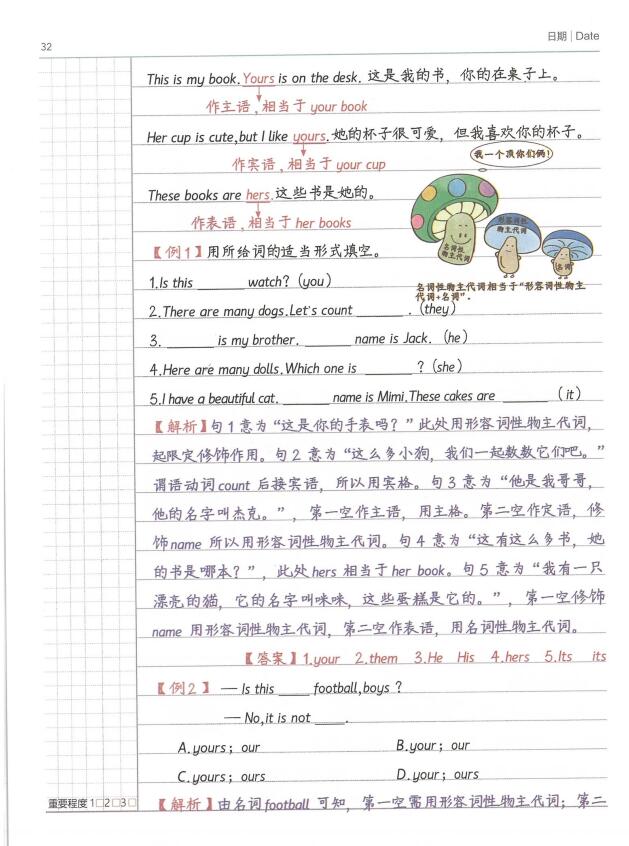 32
日期 | Date
This is my book. Yours is on the desk. 这是我的书，你的在桌子上。
作主语，相当于 your book
Her cup is cute,but I like yours.她的杯子很可爱，但我喜欢你的杯子。
作宾语，相当于 your cup
我一个顶你们俩！
These books are hers.这些书是她的。
作表语，相当于 her books
名词性物主代词
形容词性物主代词
名词
名词性物主代词相当于“形容词性物主代词+名词”.
【例1】用所给词的适当形式填空。
1.Is this ______ watch? (you)
2.There are many dogs.Let's count ______ . (they)
3. ______ is my brother. ______ name is Jack. (he)
4.Here are many dolls.Which one is ______ ? (she)
5.I have a beautiful cat. ______ name is Mimi.These cakes are ______ ( it )
【解析】句 1 意为“这是你的手表吗？”此处用形容词性物主代词，
起限定修饰作用。句 2 意为“这么多小狗，我们一起数数它们吧。”
谓语动词 count 后接宾语，所以用宾格。句 3 意为“他是我哥哥，
他的名字叫杰克。”，第一空作主语，用主格。第二空作定语，修
饰 name 所以用形容词性物主代词。句 4 意为“这有这么多书，她
的书是哪本？”，此处 hers 相当于 her book。句 5 意为“我有一只
漂亮的猫，它的名字叫咪咪，这些蛋糕是它的。”，第一空修饰
name 用形容词性物主代词，第二空作表语，用名词性物主代词。
【答案】1.your 2.them 3.He His 4.hers 5.Its its
【例2】 — Is this ____ football,boys ?
— No,it is not ____.
A.yours； our
B.your； our
C.yours； ours
D.your； ours
重要程度 1□2□3□
【解析】由名词 football 可知，第一空需用形容词性物主代词；第二